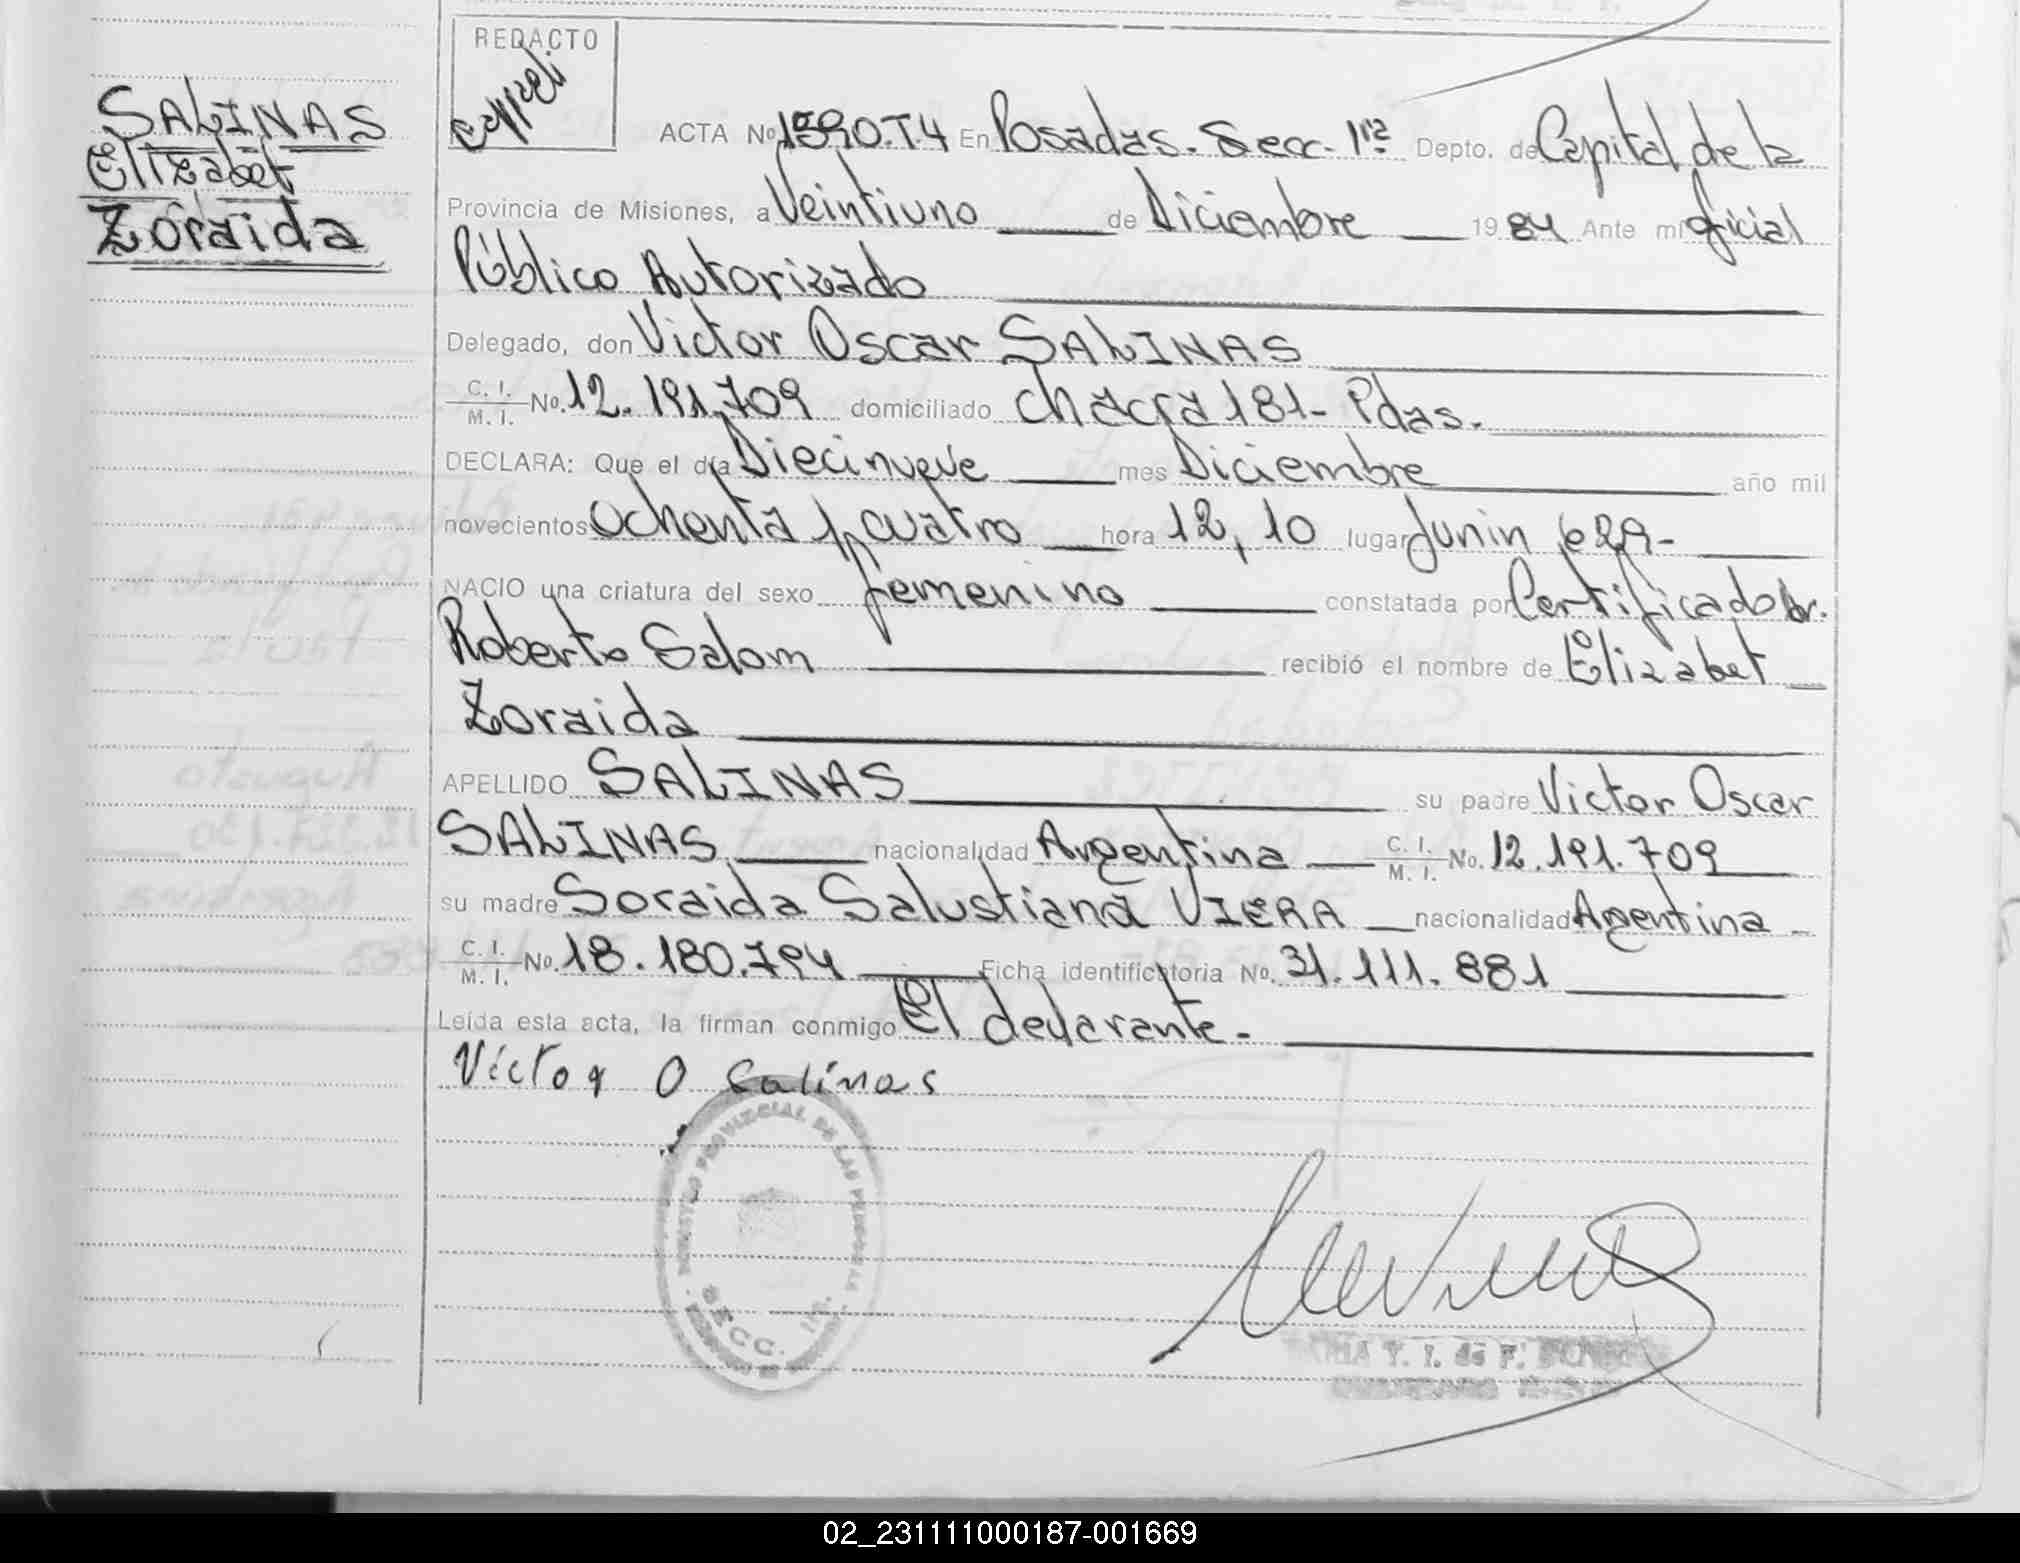 SALINAS
Elizabet
Zoraida
REDACTO
ACTA No. 1590.T.4 En Posadas. Secc. 1ra Depto. de Capital de la
Provincia de Misiones, a Veintiuno de Diciembre 1984 Ante mi Oficial
Público Autorizado
Delegado, don Victor Oscar SALINAS
C. I.
M. I. No. 12.191.709 domiciliado chacra 181- Pdas.
DECLARA: Que el día Diecinueve mes Diciembre año mil
novecientos Ochenta y cuatro hora 12,10 lugar Junin 629-
NACIO una criatura del sexo femenino constatada por Certificado Dr.
Roberto Salom recibió el nombre de Elizabet
Zoraida
APELLIDO SALINAS su padre Victor Oscar
SALINAS nacionalidad Argentina C. I. M. I. No. 12.191.709
su madre Soraida Salustiana VIERA nacionalidad Argentina -
C. I.
M. I. No. 18.180.794 Ficha identificatoria No. 31.111.881
Leída esta acta, la firman conmigo El declarante.-
Victor O Salinas
PROVINCIAL DE LAS PERSONAS
SECC. 1ra.
02_231111000187-001669